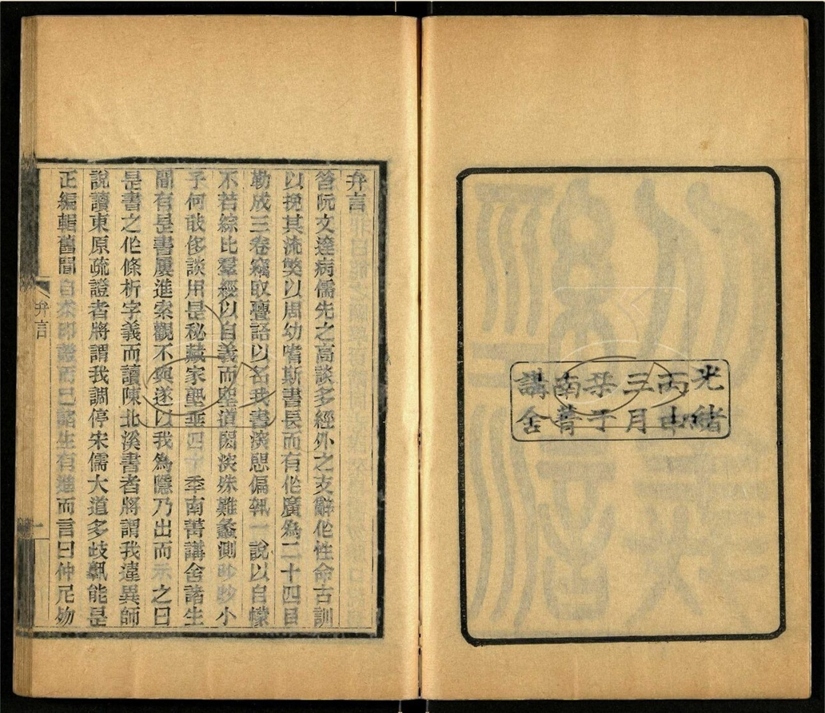 光緒
丙申
三月
栞于
南菁
講舍
弁言
昝阮文達病儒先之高談多經外之支辭作性命古訓
以挽其流獘以周幼耆斯書長而有作廣為二十四目
勒成三卷竊取疊語以名我書深惡偏執一說以自幪
不若綜比羣經以自義而聖道閎深殊難蠡測眇眇小
子何敢侈談用是秘藏家塾垂四十季南菁講舍諸生
間有是書屢進索觀不與遂以我為隱乃出而示之曰
是書之作條析字義而讀陳北溪書者將謂我違異師
說讀東原疏證者將謂我調停宋儒大道多歧孰能是
正編輯舊聞自求印證而已諸生有進而言曰仲尼歾
弁言
一